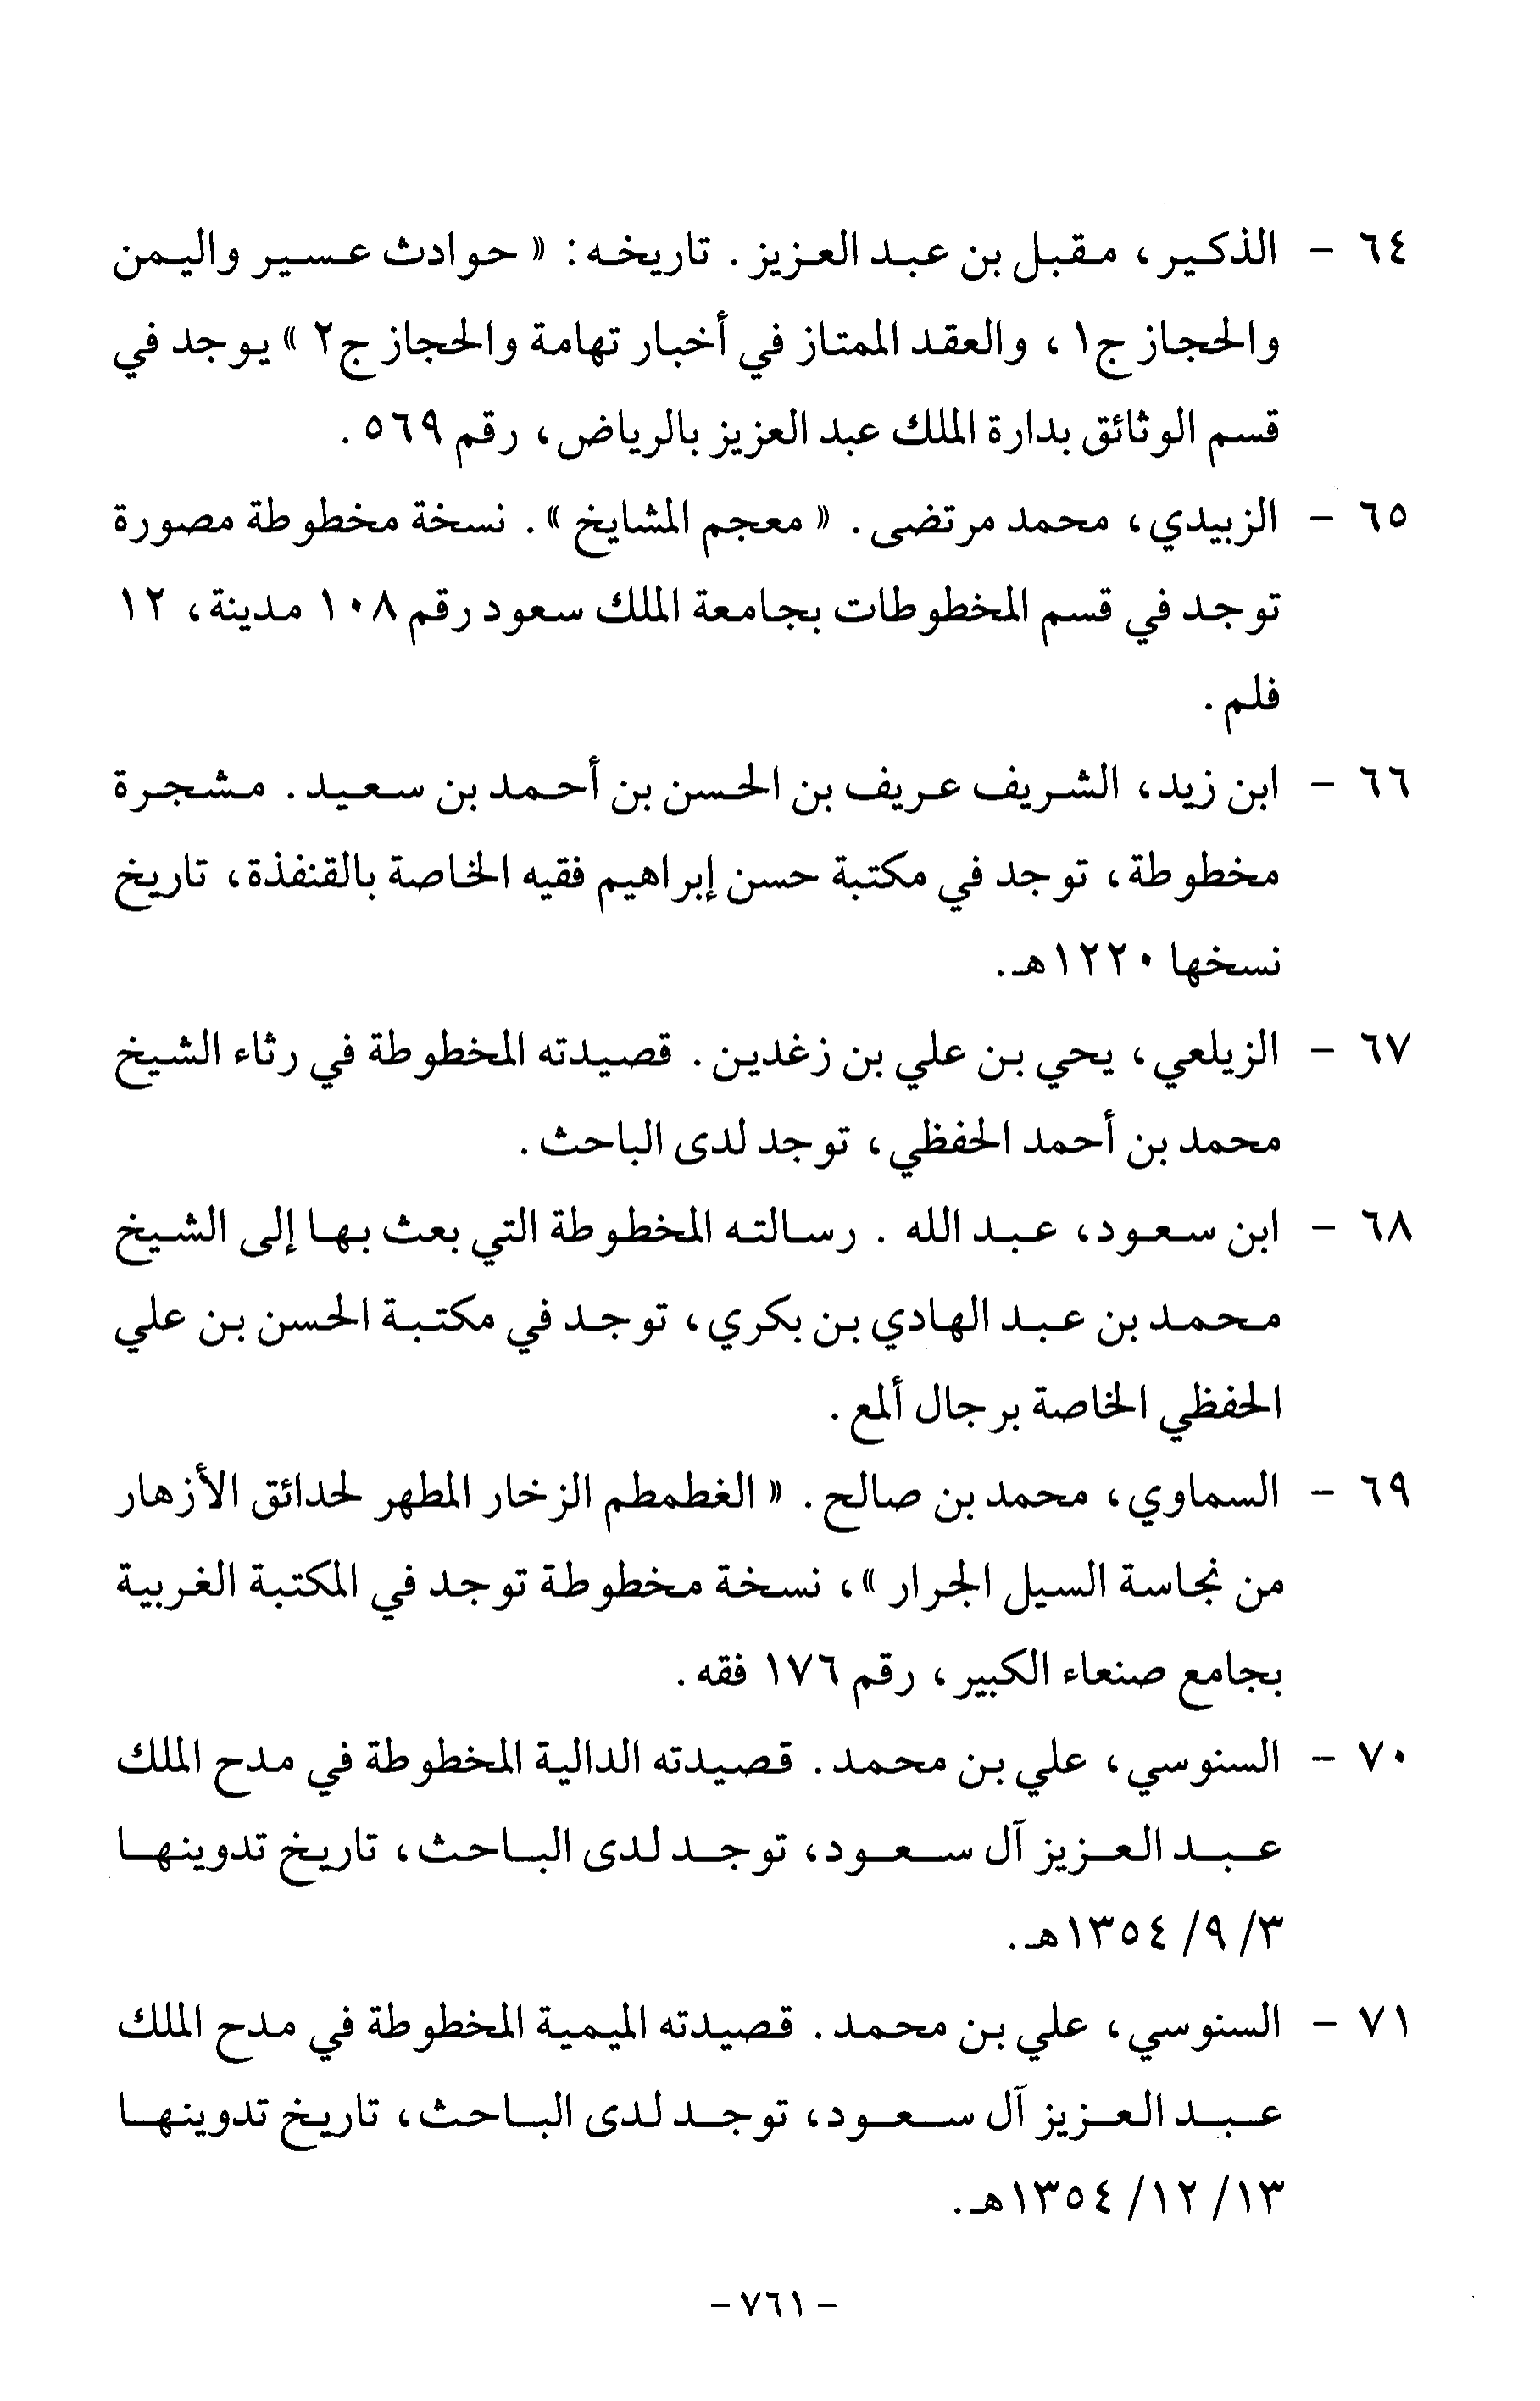 ٦٤ - الذكير، مقبل بن عبد العزيز. تاريخه: « حوادث عسير واليمن
والحجاز ج١، والعقد الممتاز في أخبار تهامة والحجاز ج٢ » يوجد في
قسم الوثائق بدارة الملك عبد العزيز بالرياض، رقم ٥٦٩.
٦٥ - الزبيدي، محمد مرتضى. « معجم المشايخ ». نسخة مخطوطة مصورة
توجد في قسم المخطوطات بجامعة الملك سعود رقم ١٠٨ مدينة، ١٢
فلم.
٦٦ - ابن زيد، الشريف عريف بن الحسن بن أحمد بن سعيد. مشجرة
مخطوطة، توجد في مكتبة حسن إبراهيم فقيه الخاصة بالقنفذة، تاريخ
نسخها ١٢٢٠هـ.
٦٧ - الزيلعي، يحي بن علي بن زغدين. قصيدته المخطوطة في رثاء الشيخ
محمد بن أحمد الحفظي، توجد لدى الباحث.
٦٨ - ابن سعود، عبد الله . رسالته المخطوطة التي بعث بها إلى الشيخ
محمد بن عبد الهادي بن بكري، توجد في مكتبة الحسن بن علي
الحفظي الخاصة برجال ألمع.
٦٩ - السماوي، محمد بن صالح. « الغطمطم الزخار المطهر لحدائق الأزهار
من نجاسة السيل الجرار »، نسخة مخطوطة توجد في المكتبة الغربية
بجامع صنعاء الكبير، رقم ١٧٦ فقه.
٧٠ - السنوسي، علي بن محمد. قصيدته الدالية المخطوطة في مدح الملك
عبد العزيز آل سعود، توجد لدى الباحث، تاريخ تدوينها
٣/ ٩/ ١٣٥٤هـ.
٧١ - السنوسي، علي بن محمد. قصيدته الميمية المخطوطة في مدح الملك
عبد العزيز آل سعود، توجد لدى الباحث، تاريخ تدوينها
١٣/ ١٢/ ١٣٥٤هـ.
- ٧٦١ -